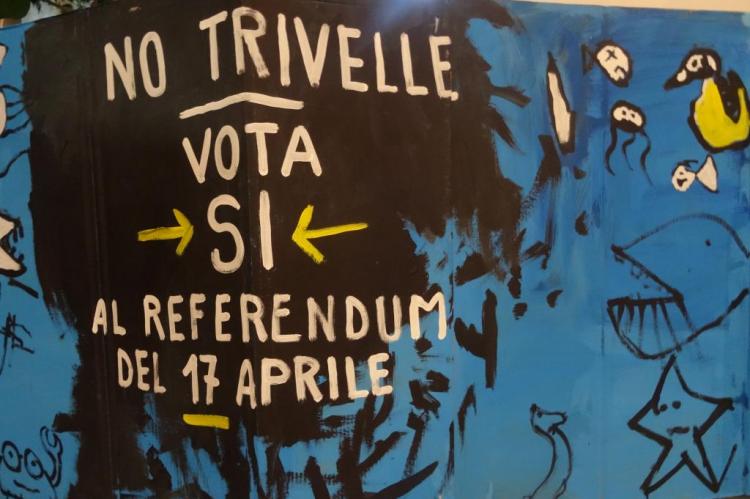 NO TRIVELLE
VOTA
SI
AL REFERENDUM
DEL 17 APRILE